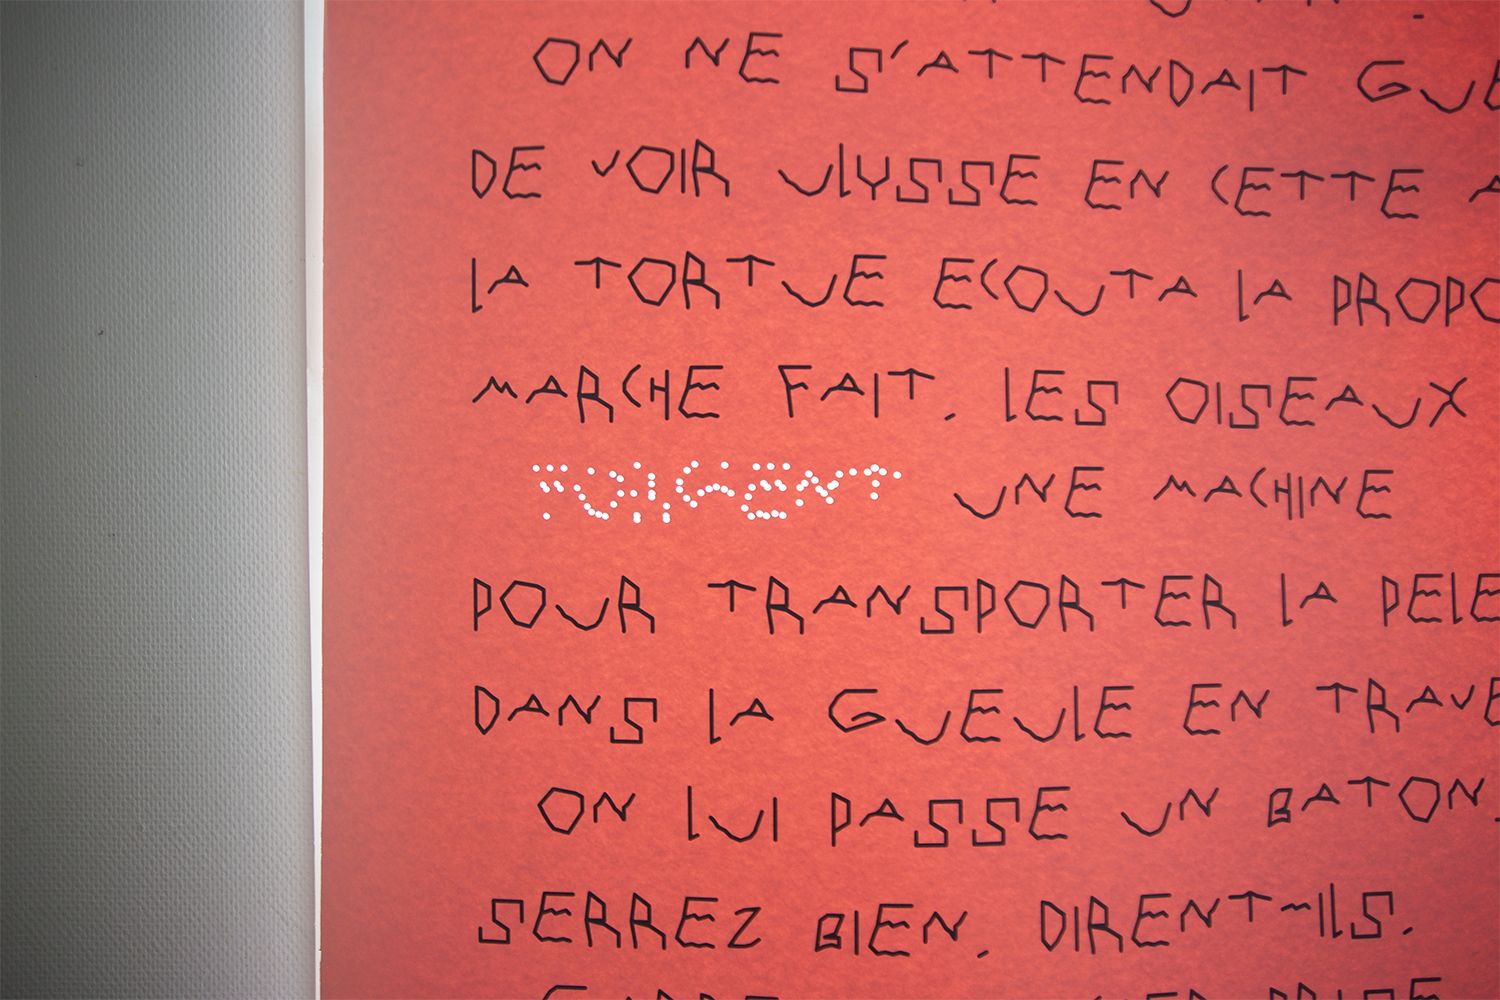 ON NE S'ATTENDAIT GUE
DE VOIR ULYSSE EN CETTE A
LA TORTUE ECOUTA LA PROPO
MARCHE FAIT, LES OISEAUX
FORGENT UNE MACHINE
POUR TRANSPORTER LA PELE
DANS LA GUEULE EN TRAVE
ON LUI PASSE UN BATON.
SERREZ BIEN, DIRENT-ILS.